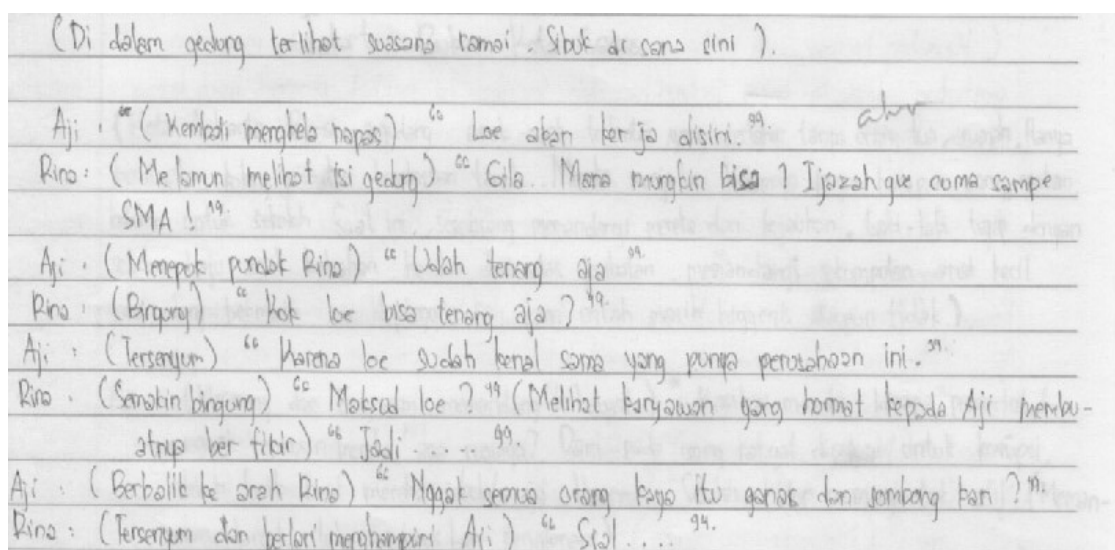 (Di dalam gedung terlihat suasana ramai. Sibuk di sana sini).
alur
Aji : “ (Kembali menghela napas) “ Loe akan kerja disini.”.
Rina : (Melamun melihat isi gedung) “ Gila.. Mana mungkin bisa? Ijazah gue cuma sampe
SMA !.”.
Aji : (Menepok pundak Rina) “ Udah tenang aja ”.
Rina : (Bingung) “ Kok loe bisa tenang aja ? ”.
Aji : (Tersenyum) “ Karena loe sudah kenal sama yang punya perusahaan ini. ”.
Rina : (Semakin bingung) “ Maksud loe ? ” (Melihat karyawan yang hormat kepada Aji membu-
atnya ber fikir) “ Jadi ... ”.
Aji : (Berbalik ke arah Rina) “ Nggak semua orang kaya itu ganas dan sombong kan ? ”.
Rina : (Tersenyum dan berlari menghampiri Aji) “ Sial .... ”.